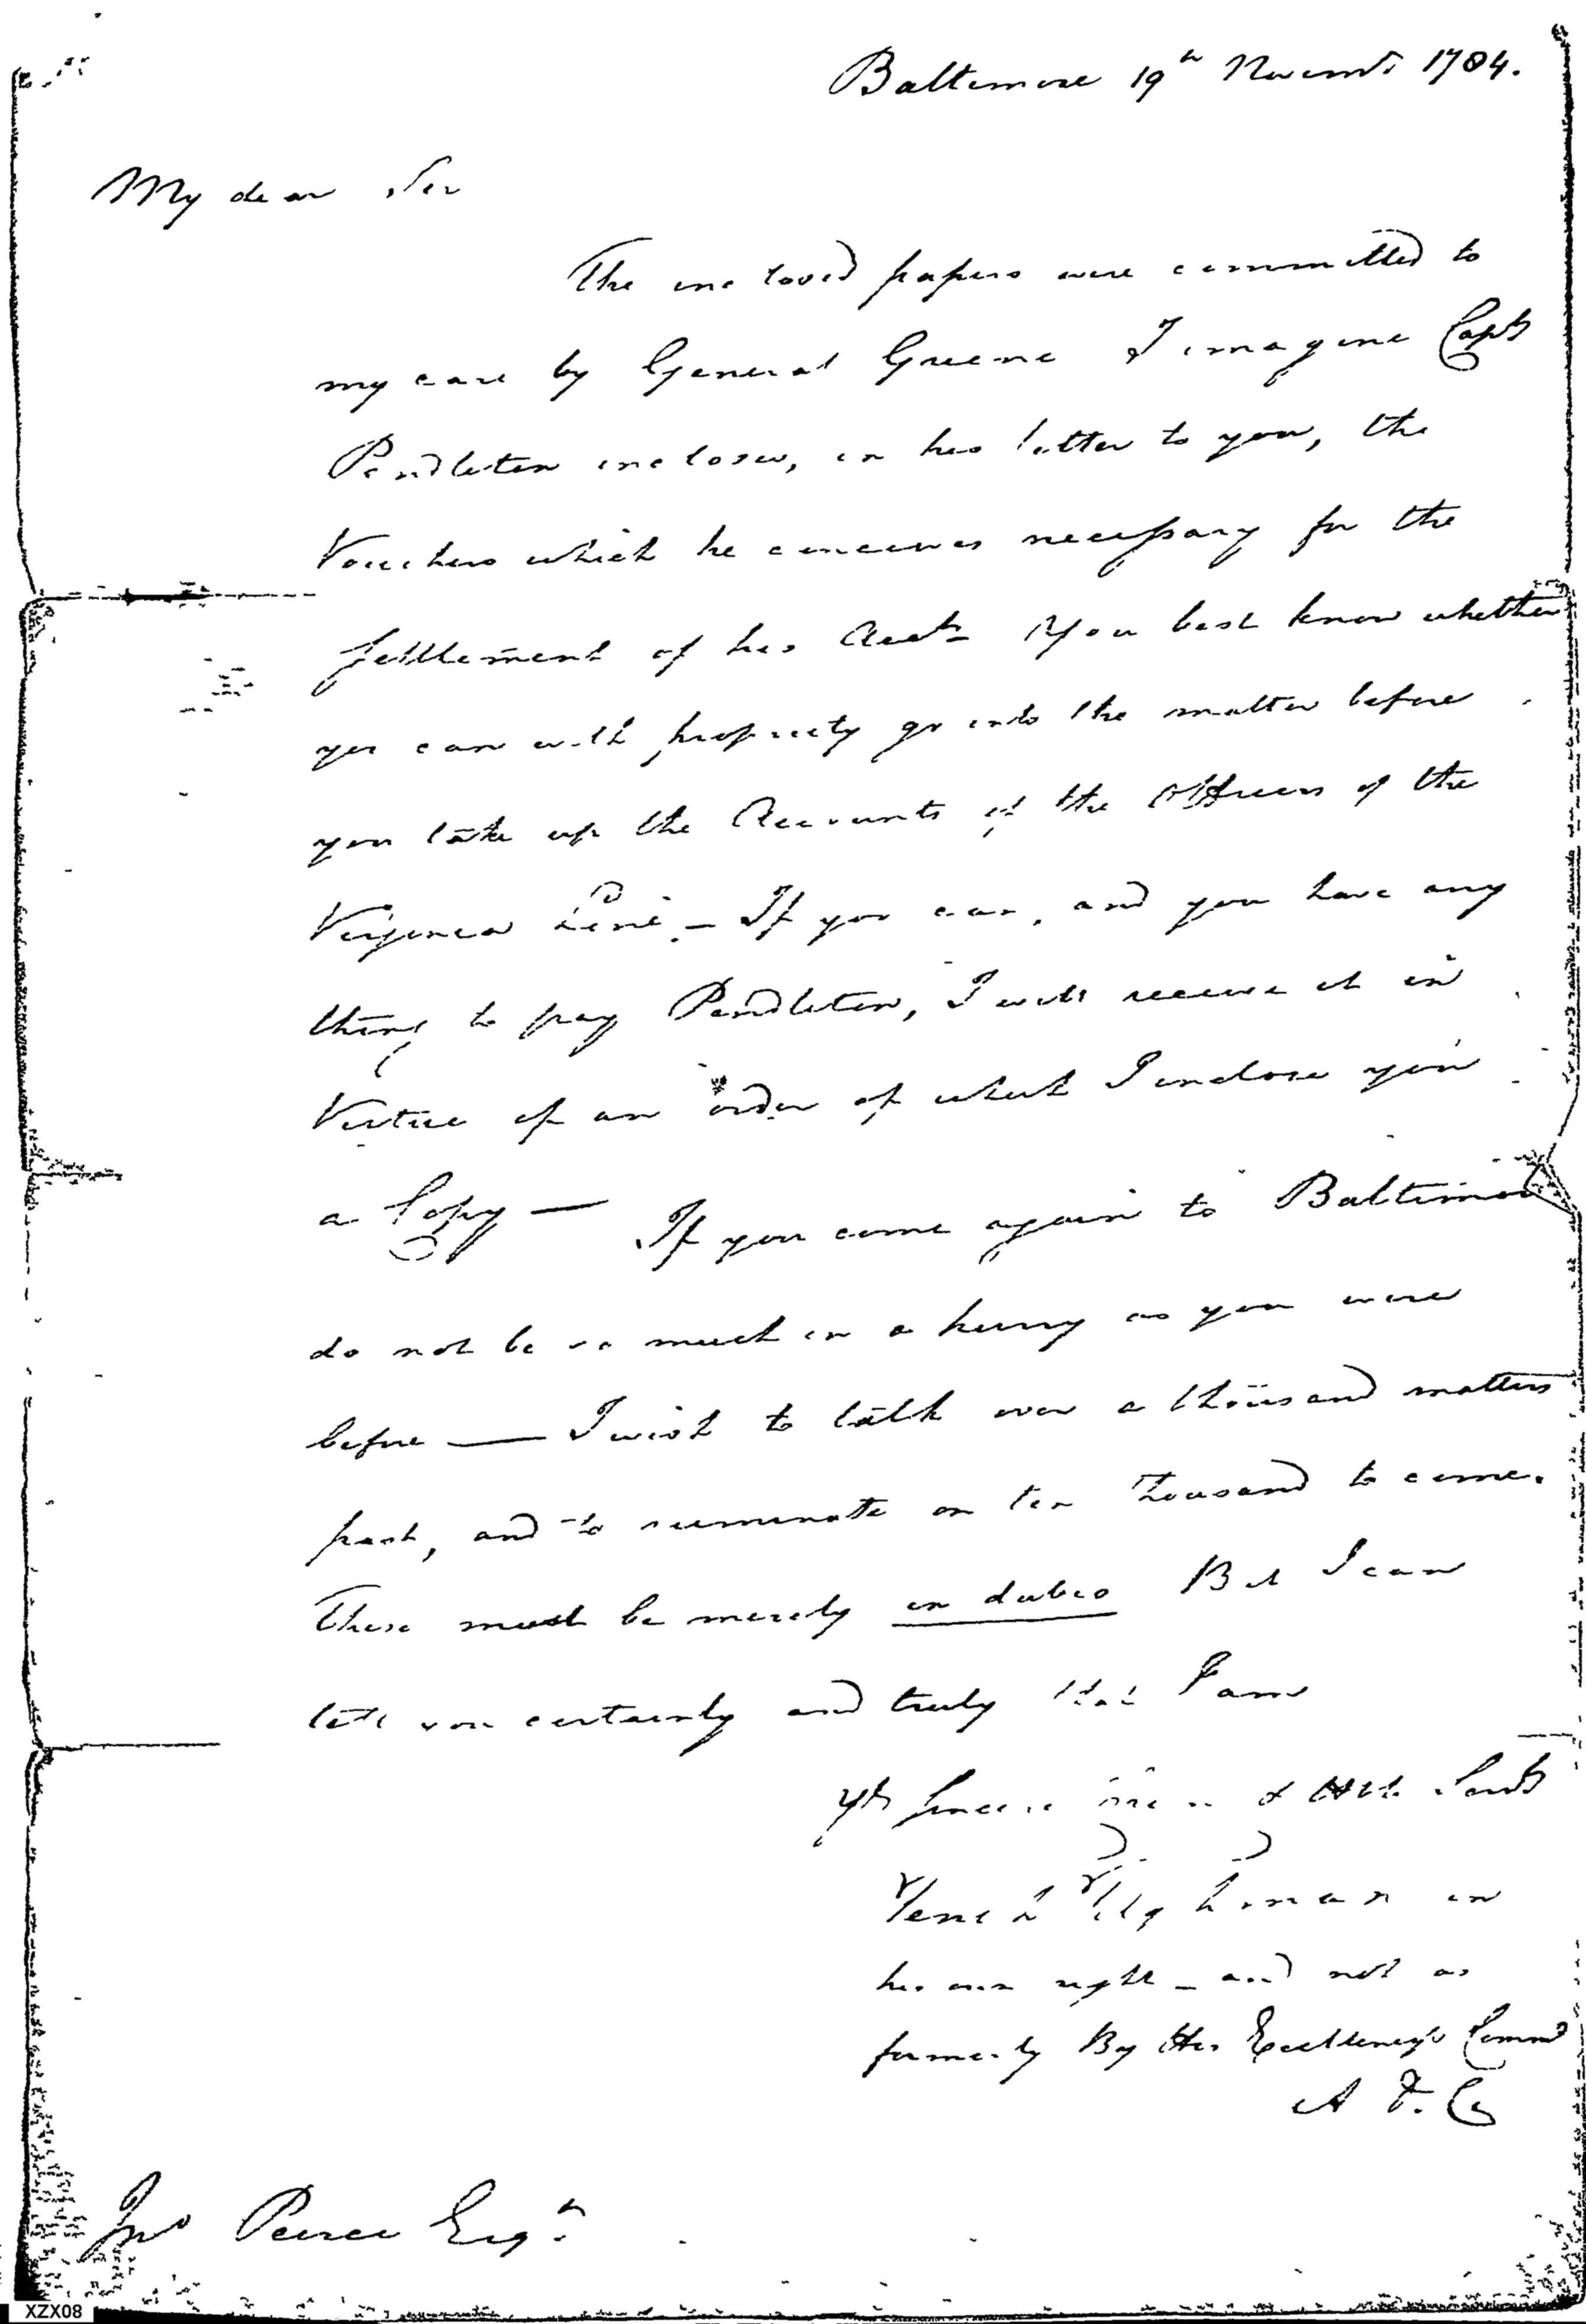 Baltimore 19th Novemr 1784.
My dear Sir
The inclosed papers were committed to
my care by General Greene I imagine Capt
Pendleton incloses, in his letter to you, the
Vouchers which he conceives necessary for the
Settlement of his Accts You best know whether
you can with propriety go into the matter before
you take up the Accounts of the Officers of the
Virginia Line. — If you can, and you have any
thing to pay Pendleton, I will receive it in
Virtue of an order of which I enclose you
a Copy — If you come again to Baltimore
do not be so much in a hurry as you were
before — I wish to talk over a thousand matters
past, and to ruminate on ten thousand to come.
These must be merely in dubio But I can
tell you certainly and truly that I am
Yr Sincere & Hble Servt
Tench Tilghman in
his own right — and not as
formerly By His Excellency's Commd
A D. C
Jno Pierce Esqr.
XZX08